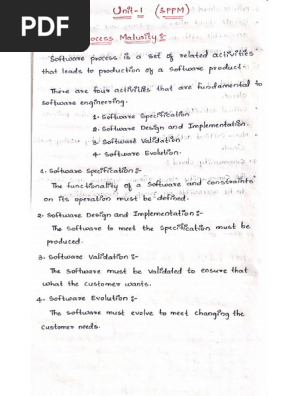 PDF
Unit-1 (SPPM)
ocess Maturity :-
Software process is a set of related activities
that leads to production of a software product.
There are four activities that are fundamental to
software engineering.
1. Software Specification
2. Software Design and Implementation.
3. Software Validation
4. Software Evolution.
1. Software Specification :-
The functionality of a software and constraints
on its operation must be defined.
2. Software Design and Implementation :-
The software to meet the specification must be
produced.
3. Software Validation :-
The software must be validated to ensure that
what the customer wants.
4. Software Evolution :-
The software must evolve to meet changing the
customer needs.